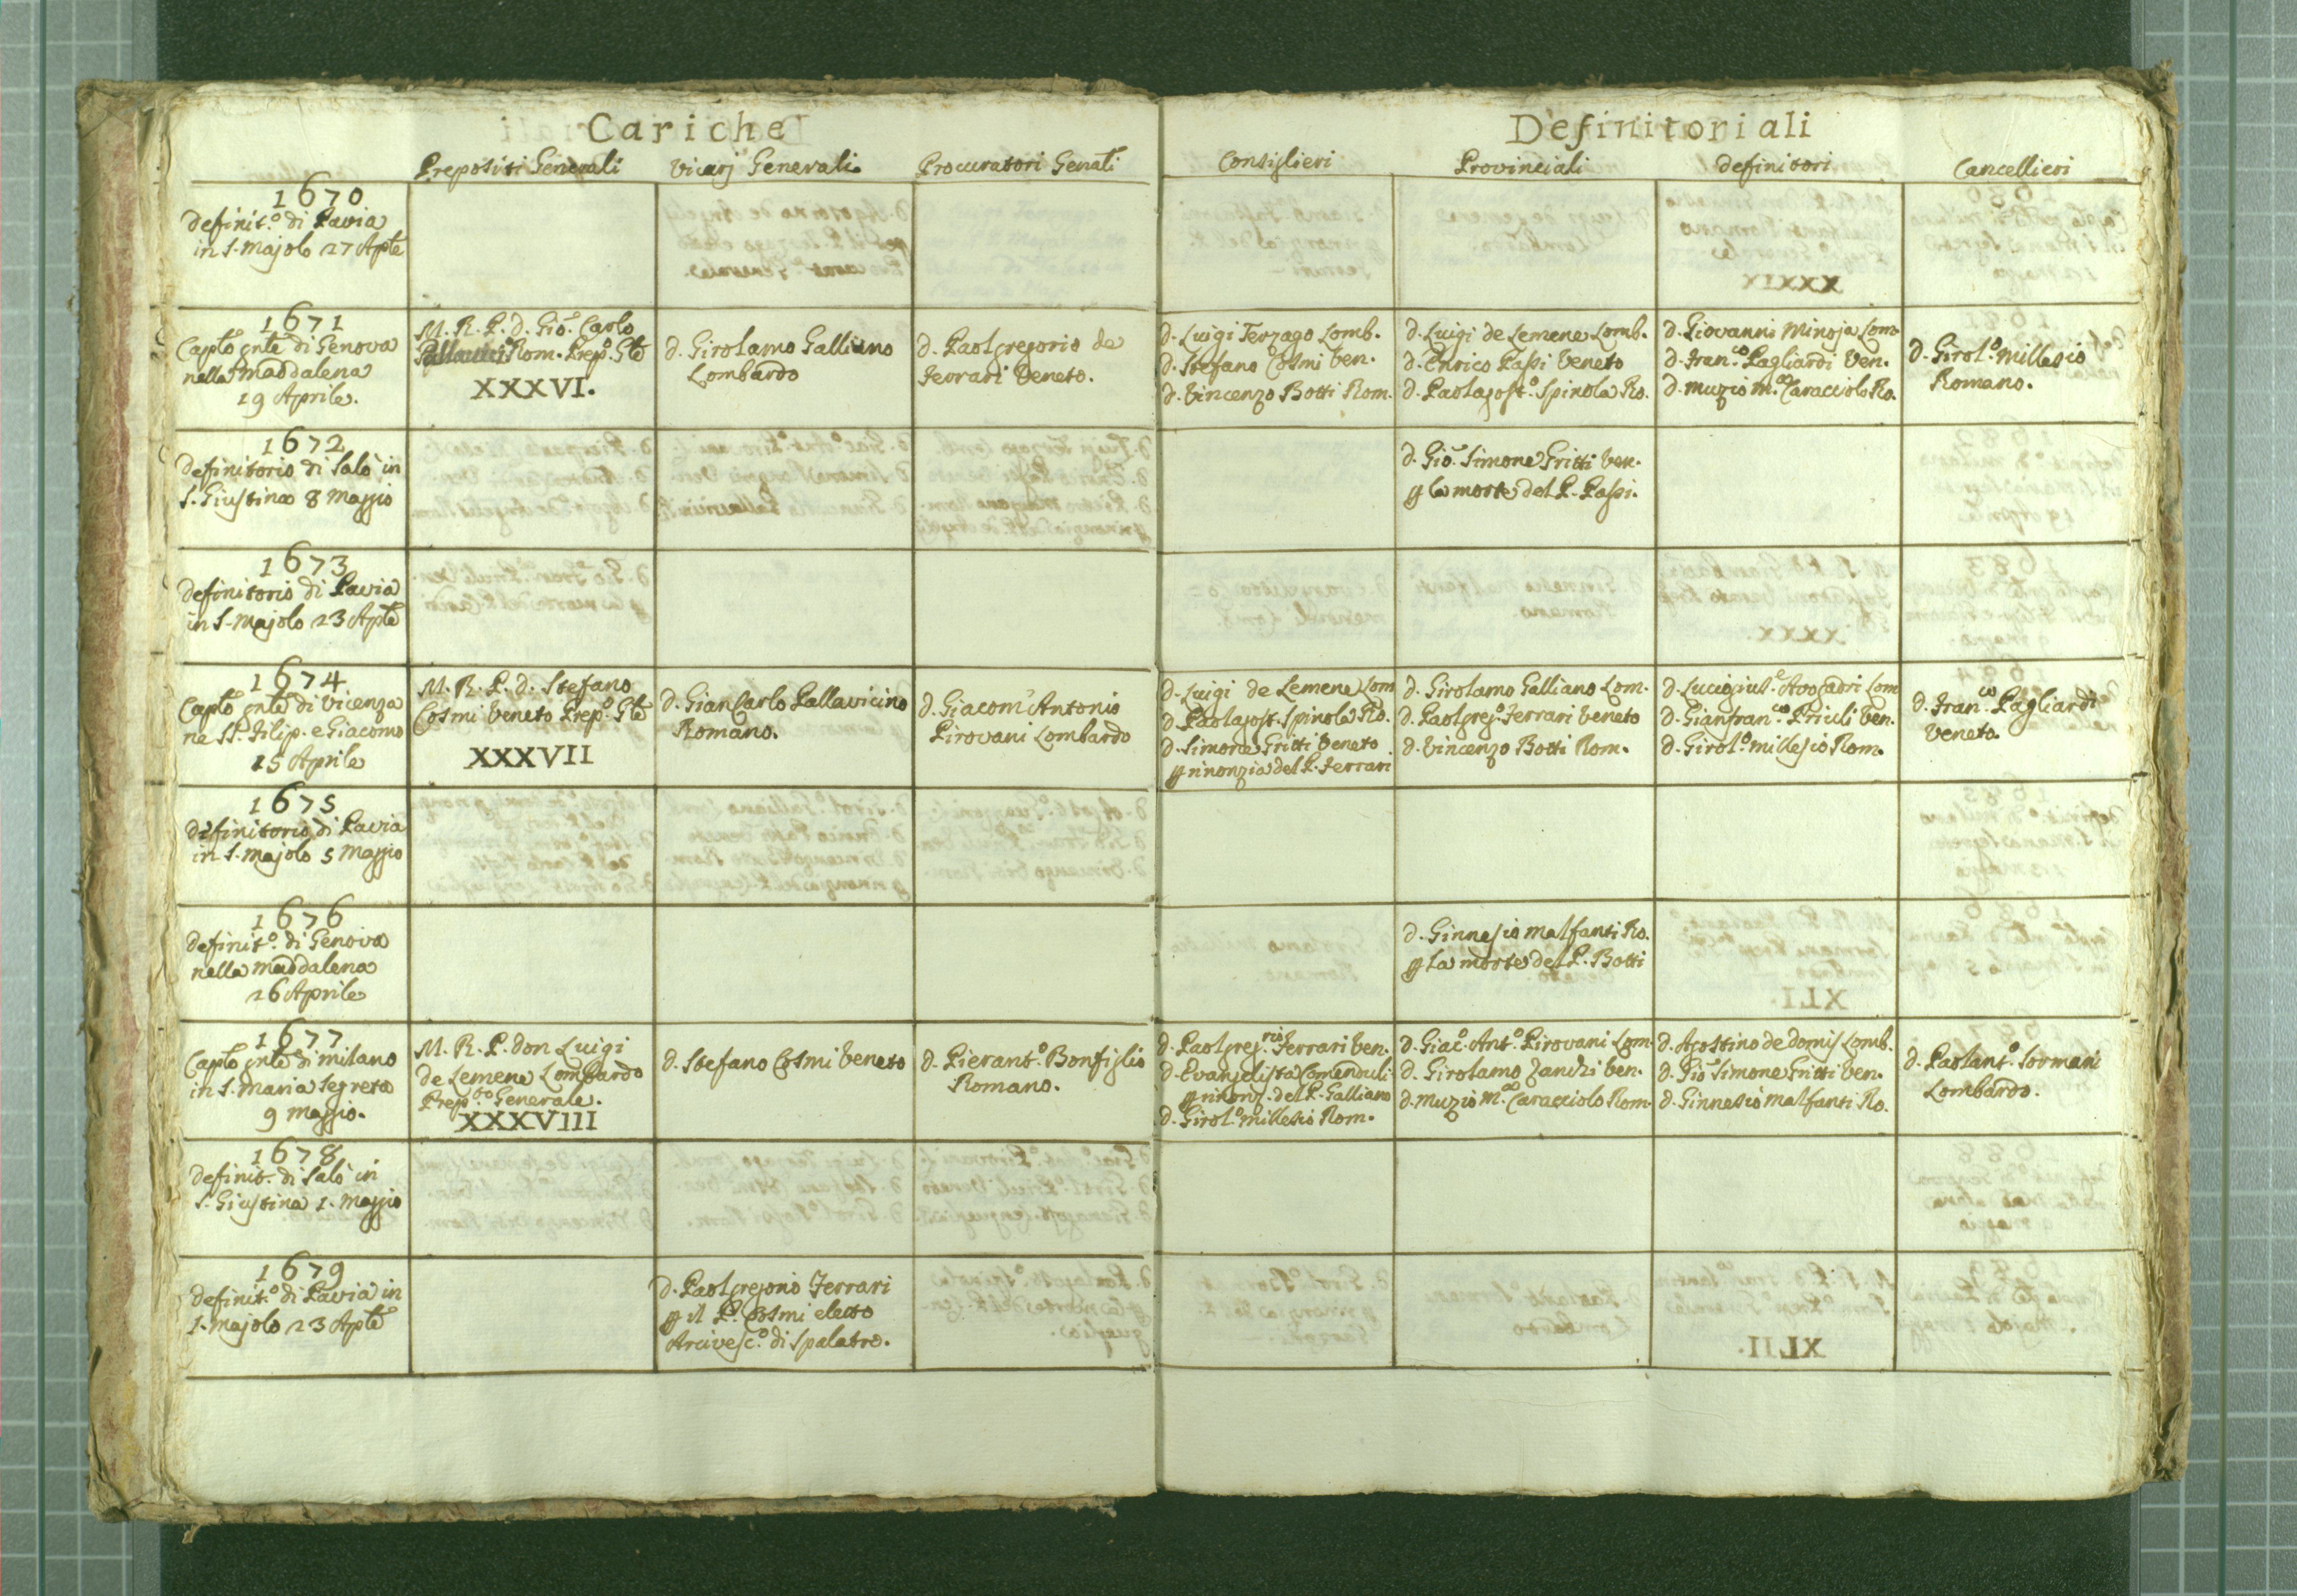 Cariche
Definitoriali
Prepositi Generali
Vicarj Generali
Procuratori Genāli
Consiglieri
Provinciali
Definitori
Cancellieri
1670
Definit.º di Pavia
in S. Majolo 27 Aplē
1671
Caplo gnlē di Genova
nella Maddalena
19 Aprile.
M. R. P. D. Gio. Carlo
Pallavicino Rom. Prep.º Glē
XXXVI.
D. Girolamo Galliano
Lombardo
D. Paolgregorio de
Ferrari Veneto.
D. Luigi Terzago Lomb.
D. Stefano Cosmi Ven.
D. Vincenzo Botti Rom.
D. Luigi de Lemene Lomb.
D. Enrico Passi Veneto
D. Paolagost.º Spinola Ro.
D. Giovanni Minoja Lom
D. Fran.co Pagliardi Ven.
D. Muzio M.a Caracciolo Ro.
D. Girol.º Millesio
Romano.
1672
Definitorio di Salò in
S. Giustina 8 Maggio
D. Gio. Simone Gritti Ven.
p la morte del P. Passi.
1673
Definitorio di Pavia
in S. Majolo 23 Aplē
1674
Caplo gnlē di Vicenza
ne SS. Filip. e Giacomo
15 Aprile
M. R. P. D. Stefano
Cosmi Veneto Prep.º Glē
XXXVII
D. GianCarlo Pallavicino
Romano.
D. Giacom'Antonio
Pirovani Lombardo
D. Luigi de Lemene Lom
D. Paolagost. Spinola Ro.
D. Simone Gritti Veneto
p rinonzia del P. Ferrari
D. Girolamo Galliano Lom.
D. Paolgreg.º Ferrari Veneto
D. Vincenzo Botti Rom.
D. Luccigiul.e Avogadri Lom
D. Gianfran.co Priuli Ven.
D. Girol.º Millesio Rom.
D. Fran.co Pagliardi
Veneto.
1675
Definitorio di Pavia
in S. Majolo 5 Maggio
1676
Definit.º di Genova
nella Maddalena
26 Aprile
D. Ginnesio Malfanti Ro.
p la morte del P. Botti
1677
Caplo gnlē di Milano
in S. Maria Segreta
9 Maggio.
M. R. P. Don Luigi
de Lemene Lombardo
Prep.to Generale.
XXXVIII
D. Stefano Cosmi Veneto
D. Pierant.º Bonfiglio
Romano.
D. Paolgreg.rio Ferrari Ven.
D. Evangelista Comenduli
p rinonz. del P. Galliano
D. Girol.º Millesio Rom.
D. Giac.º Ant.º Pirovani Lom.
D. Girolamo Zanchi Ven.
D. Muzio M.a Caracciolo Rom.
D. Agostino de Domis Lomb.
D. Gio Simone Gritti Ven.
D. Ginnesio Malfanti Ro.
D. Paolant.º Sormani
Lombardo.
1678
Definit. di Salò in
S. Giustina 1. Maggio
1679
Definit.º di Pavia in
S. Majolo 23 Aplē
D. Paolgregorio Ferrari
p il P. Cosmi eletto
Arcivesc.º di Spalatro.